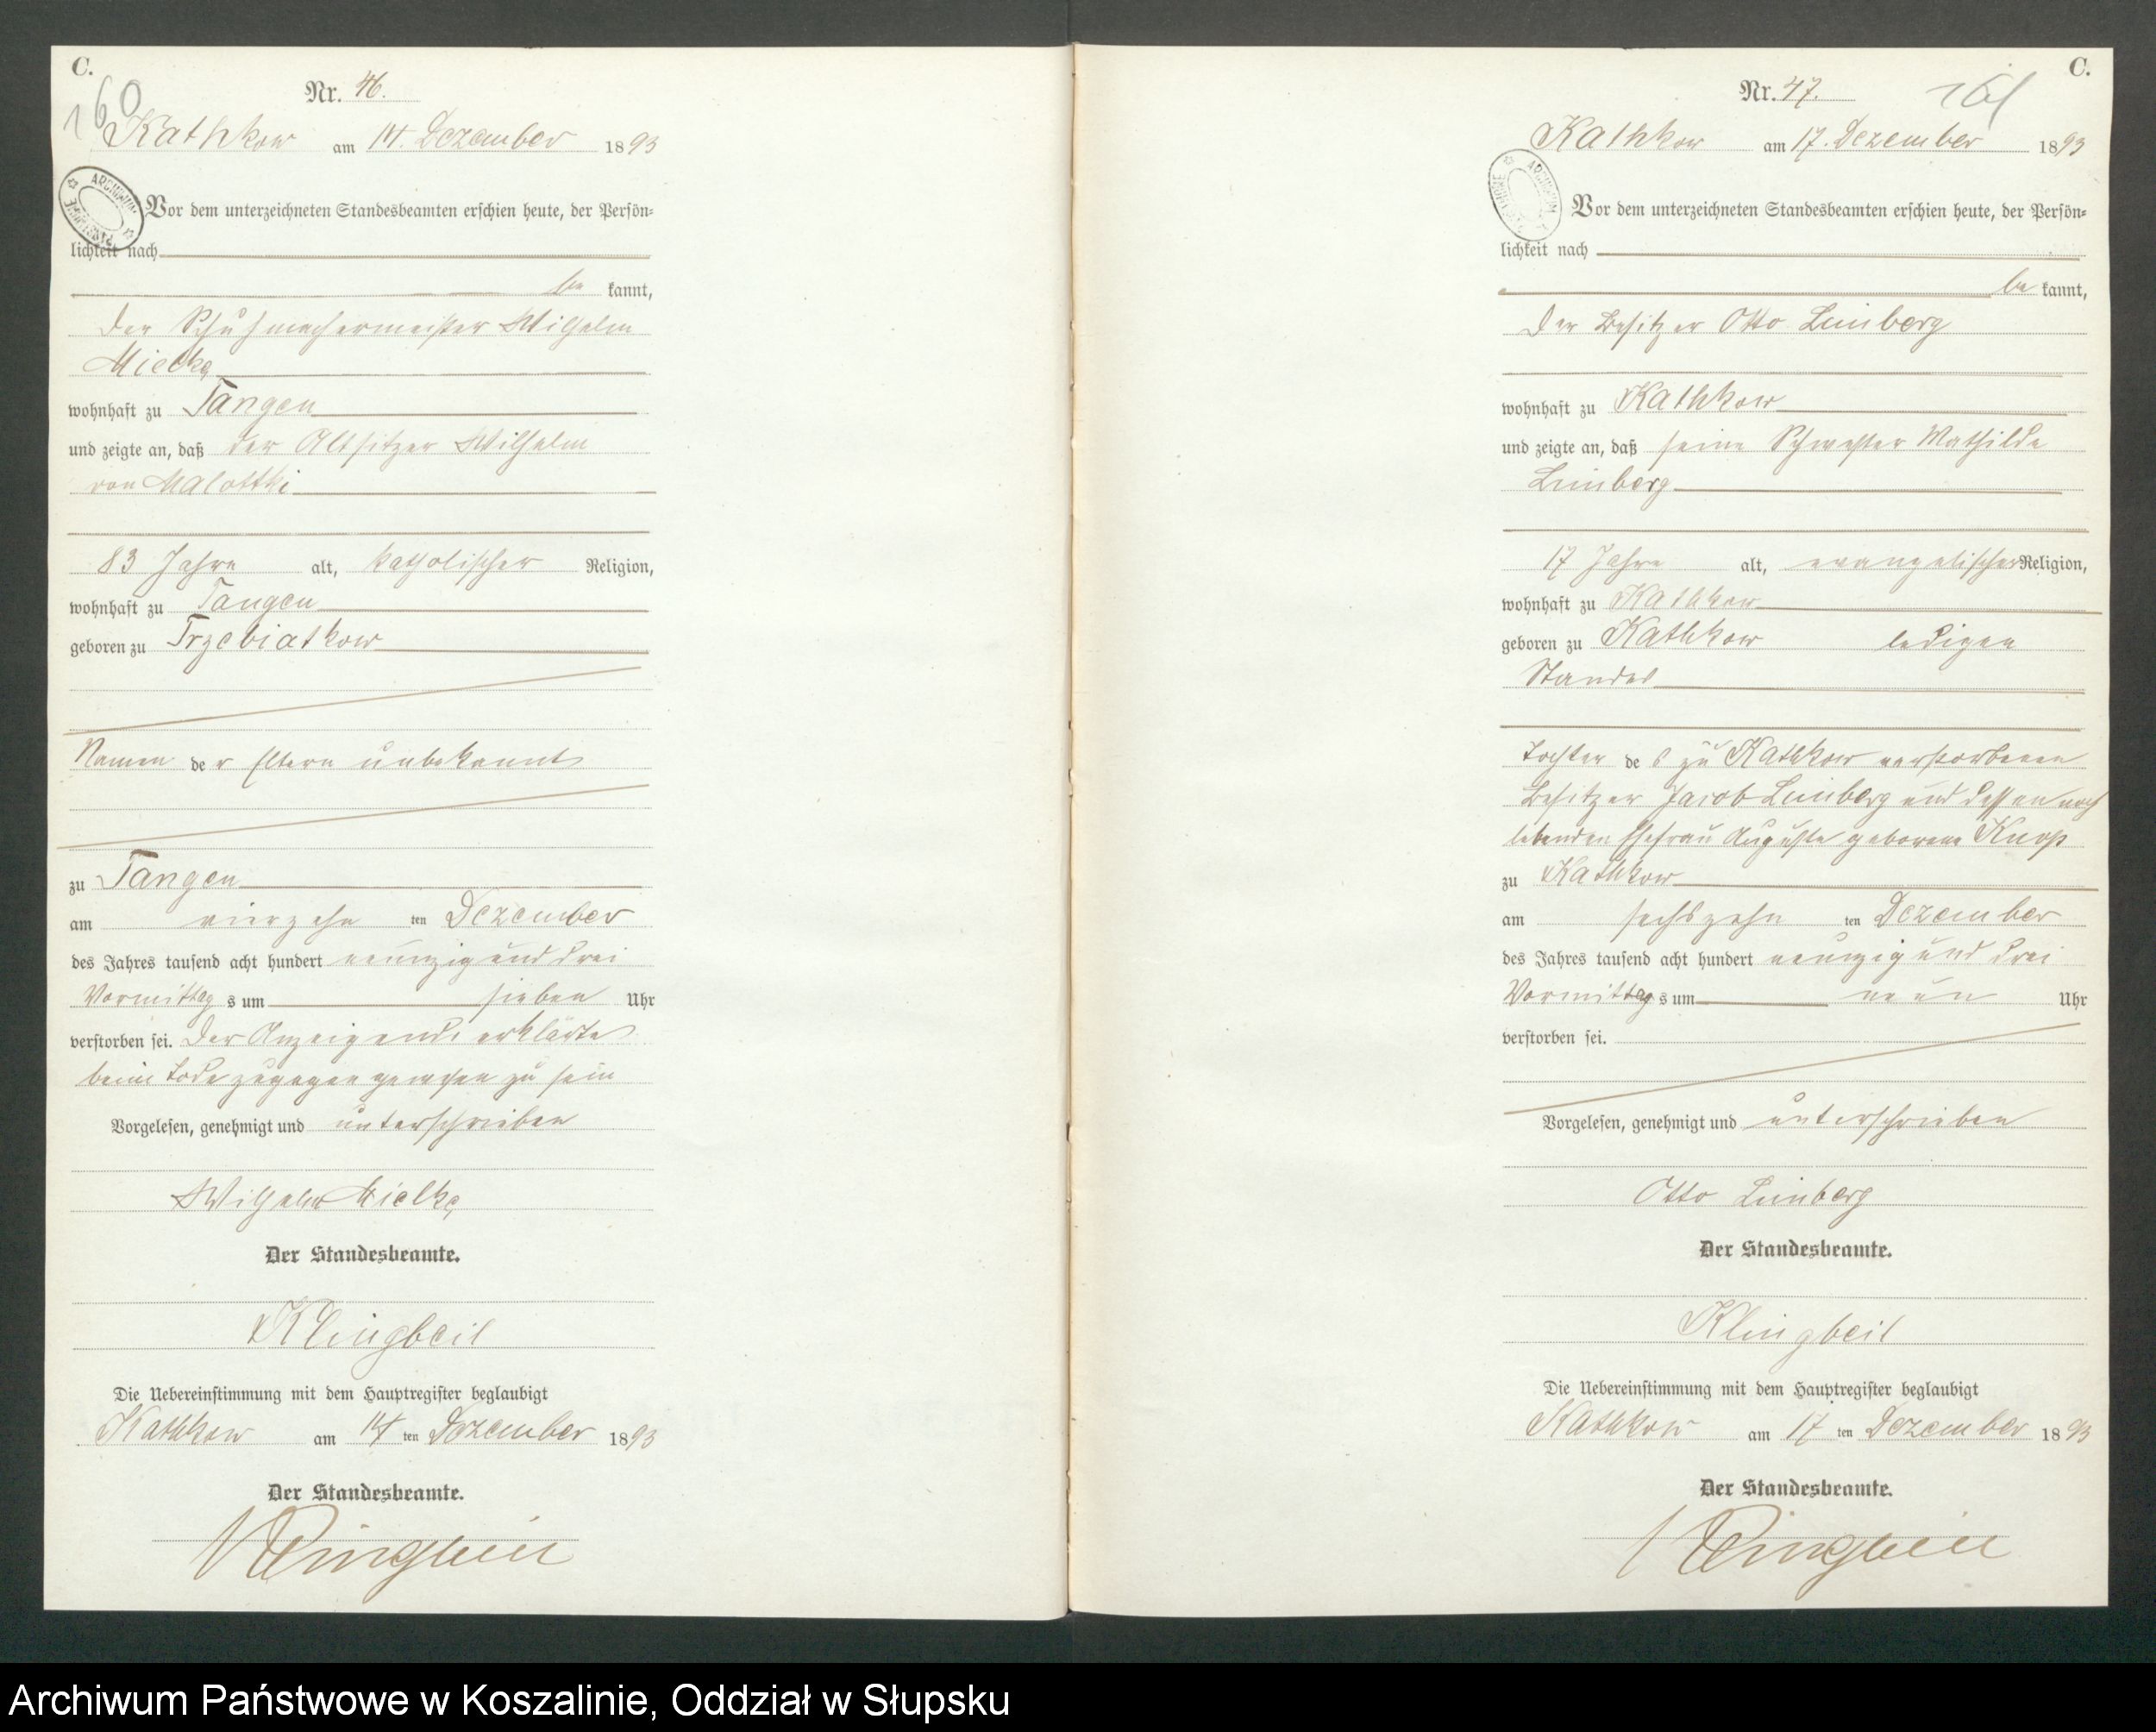 C.
160
Nr. 46.
Kathkow am 14. Dezember 1893
ARCHIWUM PAŃSTWOWE
Vor dem unterzeichneten Standesbeamten erschien heute, der Persön=
lichkeit nach
be kannt,
der Schuhmachermeister Wilhelm
Mielke
wohnhaft zu Tangen
und zeigte an, daß der Altsitzer Wilhelm
von Malottki
83 Jahre alt, katholischer Religion,
wohnhaft zu Tangen
geboren zu Trzebiatkow
Namen der Eltern unbekannt
zu Tangen
am vierzehn ten Dezember
des Jahres tausend acht hundert neunzig und drei
Vormittags um sieben Uhr
verstorben sei. Der Anzeigende erklärte
beim Tode zugegen gewesen zu sein
Vorgelesen, genehmigt und unterschrieben
Wilhelm Mielke
Der Standesbeamte.
Klingbeil
Die Uebereinstimmung mit dem Hauptregister beglaubigt
Kathkow am 14 ten Dezember 1893
Der Standesbeamte.
Klingbeil
C.
161
Nr. 47.
Kathkow am 17. Dezember 1893
ARCHIWUM PAŃSTWOWE
Vor dem unterzeichneten Standesbeamten erschien heute, der Persön=
lichkeit nach
be kannt,
der Besitzer Otto Limberg
wohnhaft zu Kathkow
und zeigte an, daß seine Schwester Mathilde
Limberg
17 Jahre alt, evangelischer Religion,
wohnhaft zu Kathkow
geboren zu Kathkow ledigen
Standes
Tochter des zu Kathkow verstorbenen
Besitzer Jacob Limberg und dessen noch
lebenden Ehefrau Auguste geborene Knop
zu Kathkow
am sechszehn ten Dezember
des Jahres tausend acht hundert neunzig und drei
Vormittags um neun Uhr
verstorben sei.
Vorgelesen, genehmigt und unterschrieben
Otto Limberg
Der Standesbeamte.
Klingbeil
Die Uebereinstimmung mit dem Hauptregister beglaubigt
Kathkow am 17 ten Dezember 1893
Der Standesbeamte.
Klingbeil
Archiwum Państwowe w Koszalinie, Oddział w Słupsku